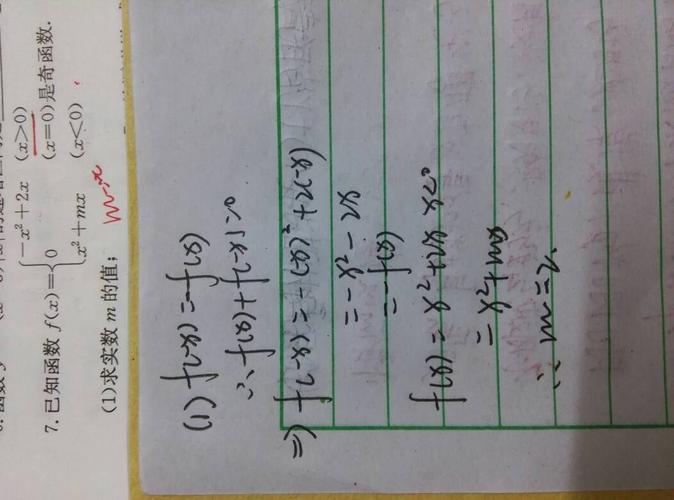 7. 已知函数 f(x)={ -x²+2x (x>0)
0 (x=0)是奇函数.
x²+mx (x<0)
(1)求实数 m 的值;
(1) f(-x)=-f(x)
∴ f(x)+f(-x)=0
⇒) f(-x)=-(-x)²+2(-x)
=-x²-2x
=-f(x)
f(x)=x²+2x x<0
=x²+mx
∴ m=2.